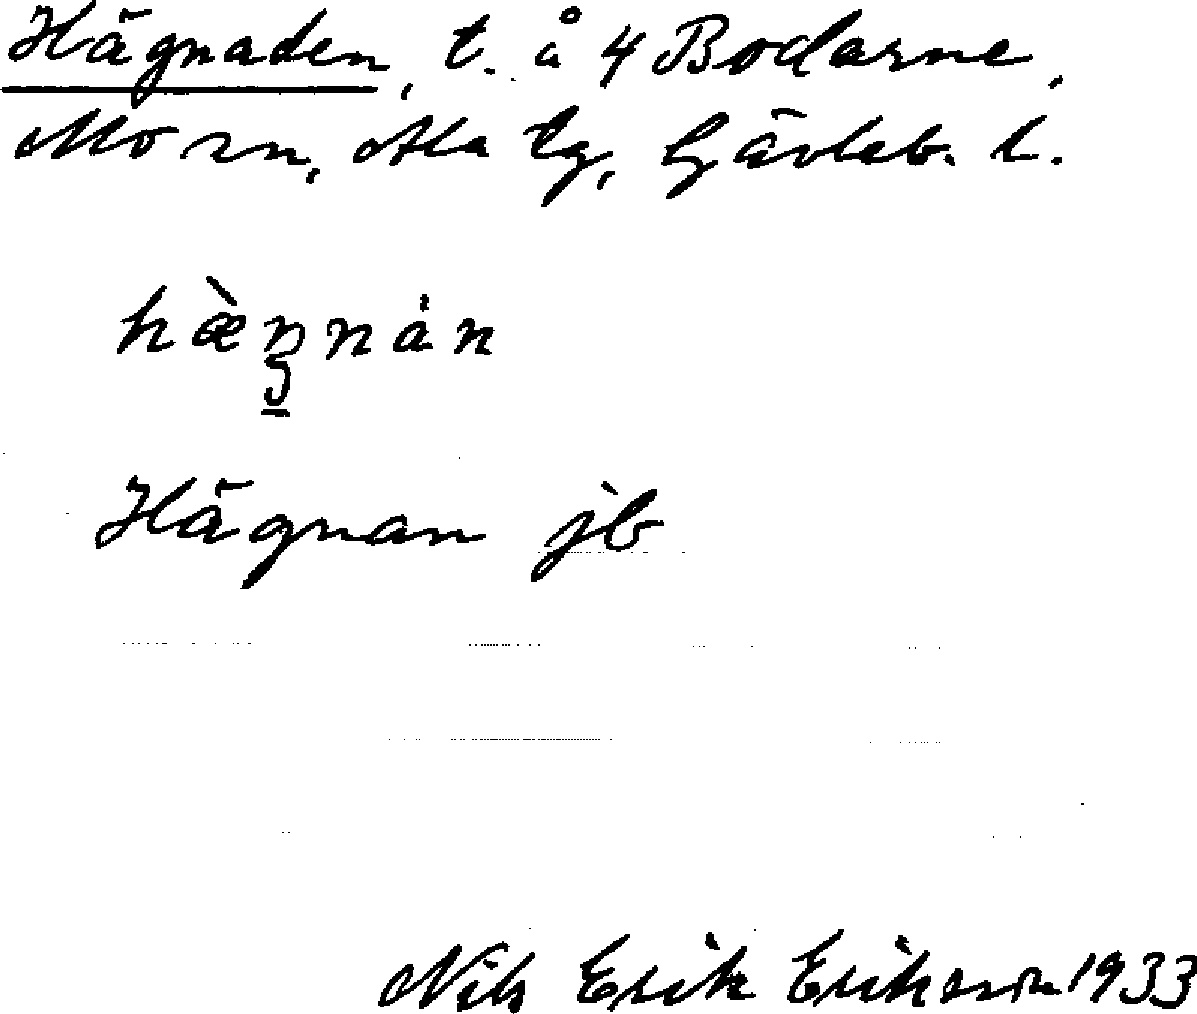 Hägnaden, t. å 4 Bodarne,
Mo sn, Ala tg, Gävleb. l.
hæ̀ŋnȧn
Hägnan jb
Nils Erik Eriksson 1933